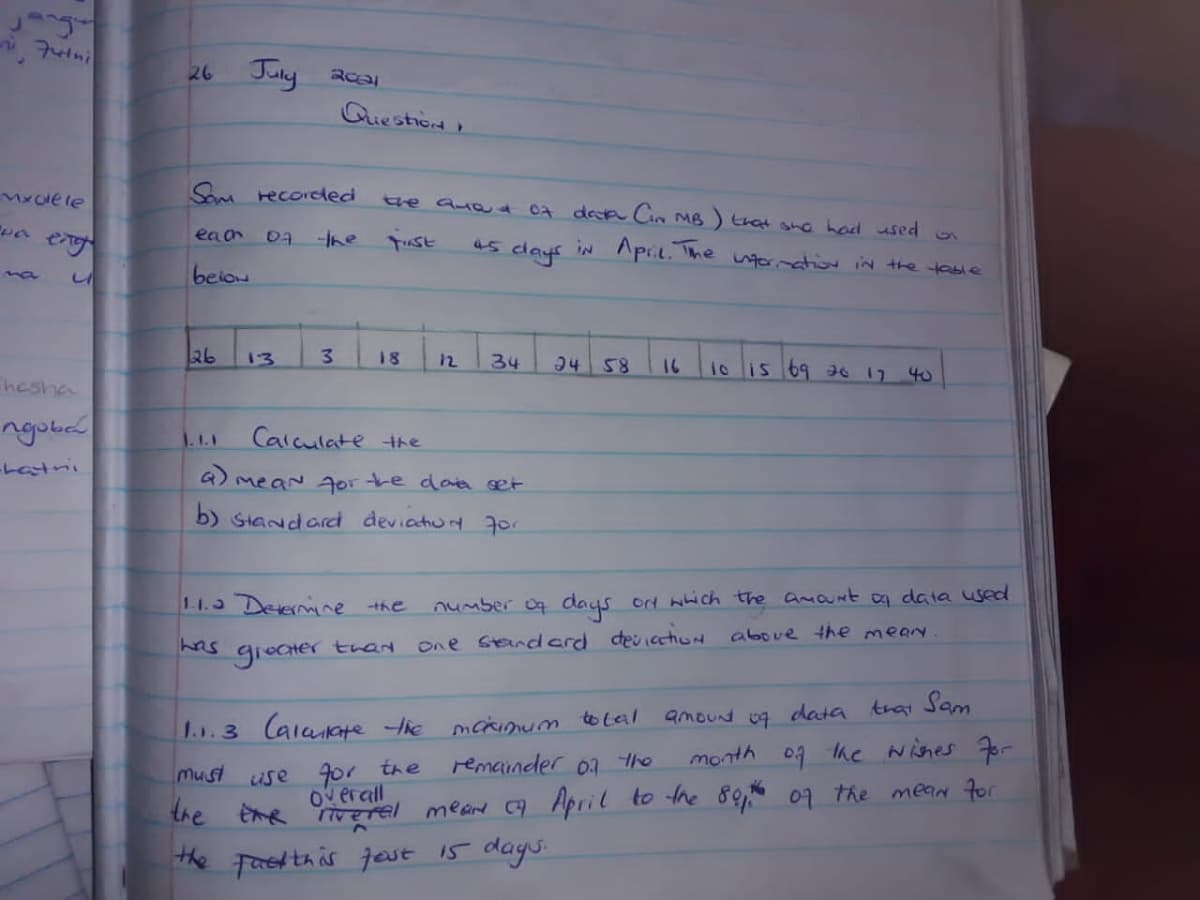 26 July 2021
Question 1
Sam recorded the amount of data (in MB) that she had used on
each of the first 15 days in April. The information in the table
below
26 13 3 18 12 34 24 58 16 10 15 69 20 17 40
1.1.1 Calculate the
a) mean for the data set
b) standard deviation for
1.1.2 Determine the number of days on which the amount of data used
was greater than one standard deviation above the mean.
1.1.3 Calculate the maximum total amount of data that Sam
must use for the remainder of the month of the wishes for
the the overall mean of April to the 80% of the mean for
the this fast 15 days.
enot
ngoba